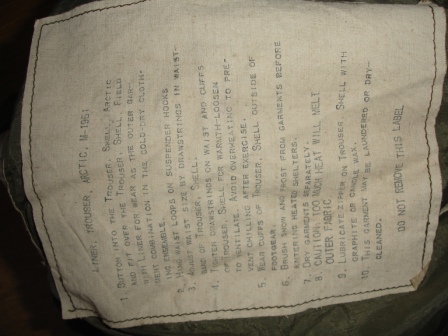 LINER, TROUSER, ARCTIC, M-1951
1. BUTTON INTO THE TROUSER, SHELL, ARCTIC
AND FIT OVER THE TROUSER, SHELL, FIELD
WITH LINER FOR WEAR AS THE OUTER GAR-
MENT COMBINATION IN THE COLD-DRY CLOTH-
ING ENSEMBLE.
2. WAIST LOOPS OR SUSPENDER HOOKS
3. ADJUST WAIST SIZE BY DRAWSTRINGS IN WAIST-
BAND OF TROUSER, SHELL.
4. TIGHTEN DRAWSTRINGS ON WAIST AND CUFFS
OF TROUSER, SHELL FOR WARMTH-LOOSEN
TO VENTILATE. AVOID OVERHEATING TO PRE-
VENT CHILLING AFTER EXERCISE.
5. WEAR CUFFS OF TROUSER, SHELL OUTSIDE OF
FOOTGEAR.
6. BRUSH SNOW AND FROST FROM GARMENTS BEFORE
ENTERING HEATED SHELTERS.
7. DRY GARMENTS SEPARATELY.
8. CAUTION: TOO MUCH HEAT WILL MELT
OUTER FABRIC
9. LUBRICATE ZIPPER ON TROUSER, SHELL WITH
GRAPHITE OR CANDLE WAX.
10. THIS GARMENT MAY BE LAUNDERED OR DRY-
CLEANED.
DO NOT REMOVE THIS LABEL